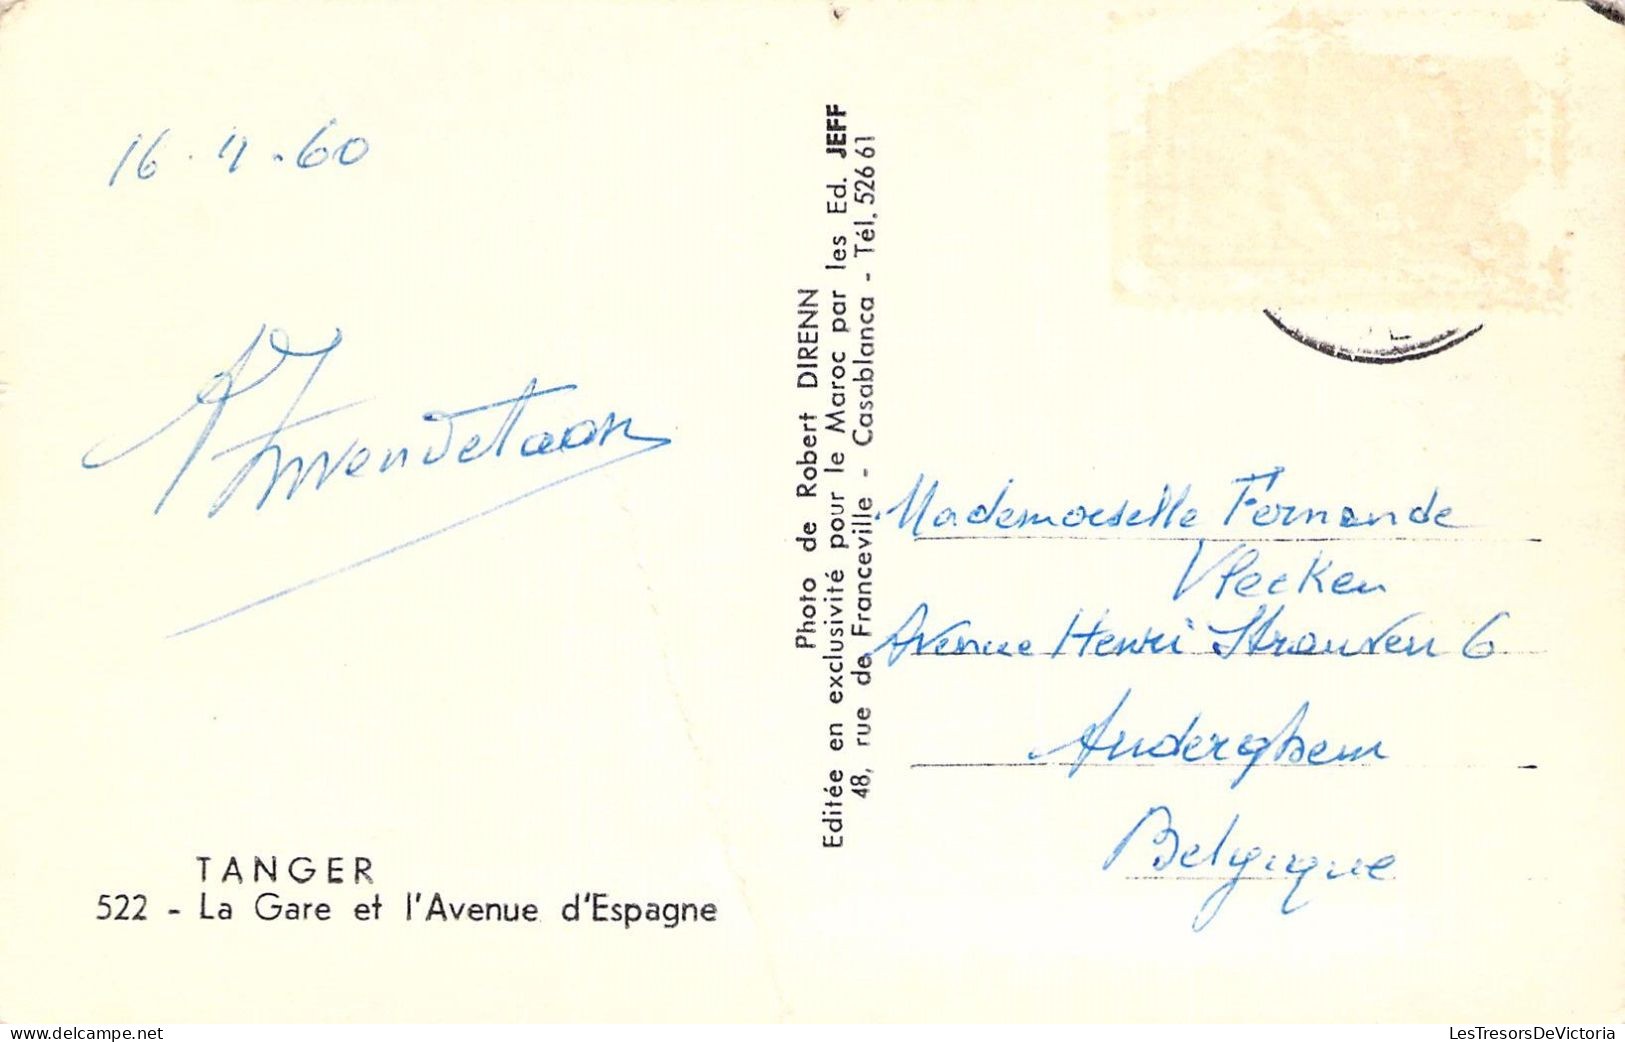 16.4.60
TANGER
522 - La Gare et l'Avenue d'Espagne
Photo de Robert DIRENN
Editée en exclusivité pour le Maroc par les Ed. JEFF
48, rue de Franceville - Casablanca - Tél. 526 61
Mademoiselle Fernande
Vlecken
Avenue Henri Strauven 6
Auderghem
Belgique
delcampe.net
LesTresorsDeVictoria